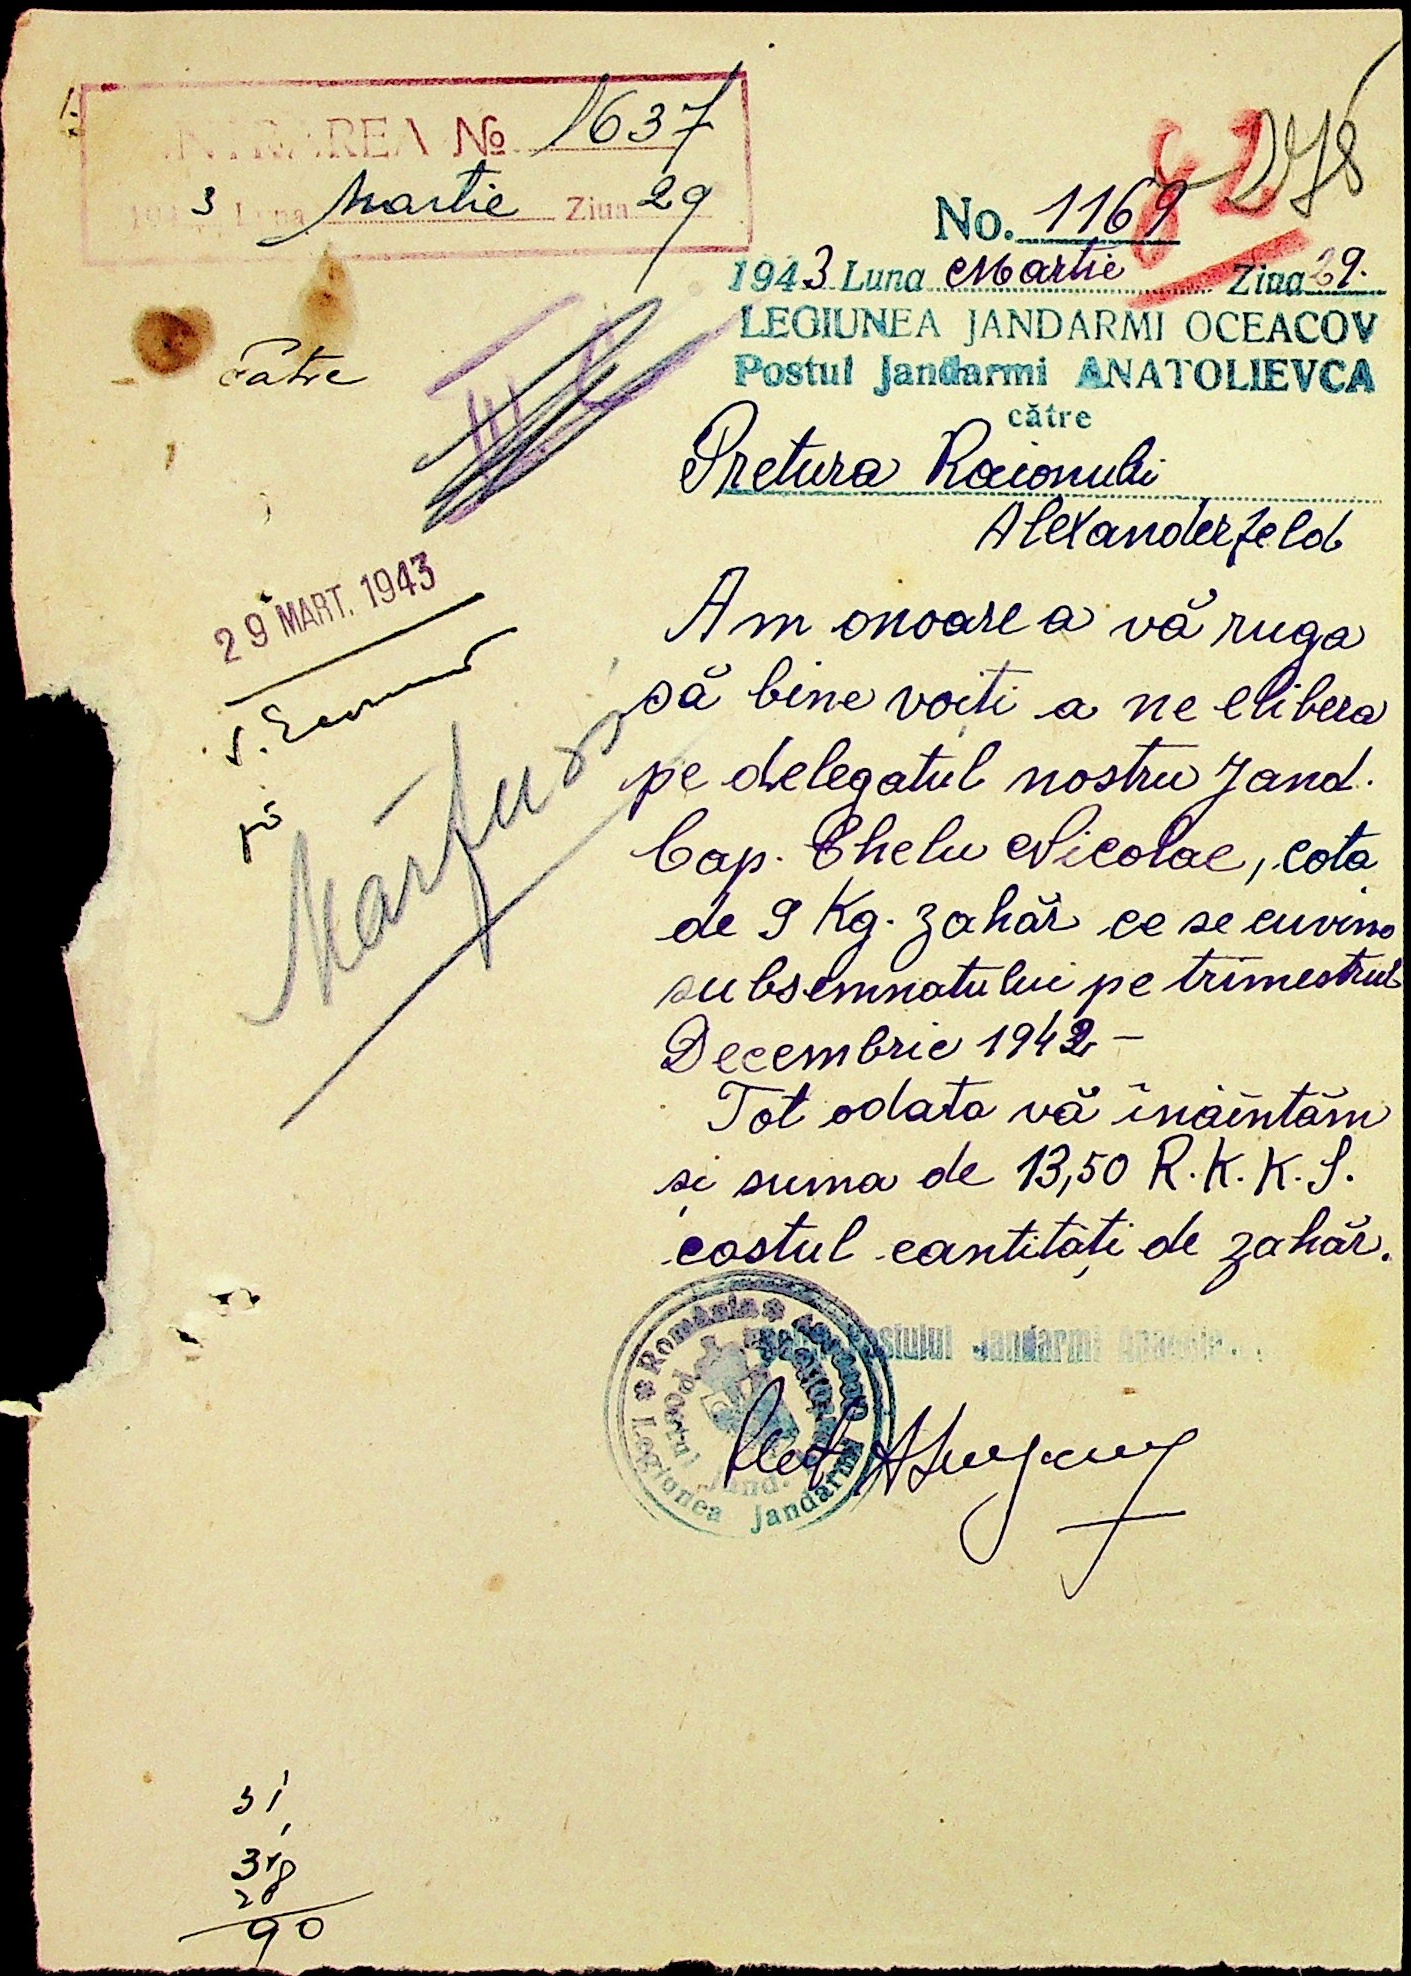 INTRAREA № 1637
1943 Luna Martie Ziua 29
278
82
No. 1169
1943 Luna Martie Ziua 29.
LEGIUNEA JANDARMI OCEACOV
Postul Jandarmi ANATOLIEVCA
către
Pretura Raionului
Alexanderfeld
Am onoare a vă ruga
să bine voiți a ne elibera
pe delegatul nostru Jand.
Cap. Chelu Nicolae, cota
de 9 Kg. zahăr ce se cuvine
subsemnatului pe trimestrul
Decembrie 1942 –
Tot odata vă înăintăm
și suma de 13,50 R.K.K.S.
costul cantități de zahăr.
Postului Jandarmi
România
Legiunea Jandarmi
Postul Jand.
29 MART. 1943
90